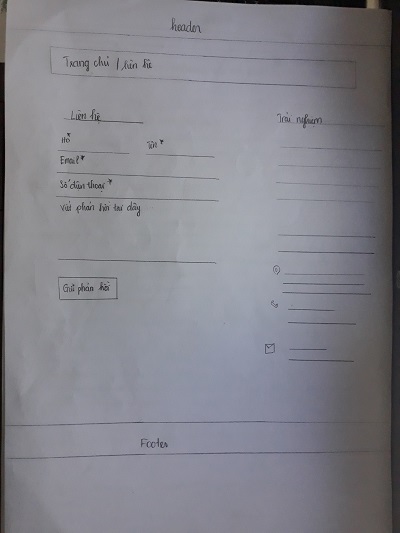 header
Trang chủ / liên hệ
Liên hệ
Họ* Tên*
Email*
Số điện thoại*
Viết phản hồi tại đây
Gửi phản hồi
Trải nghiệm
Footer